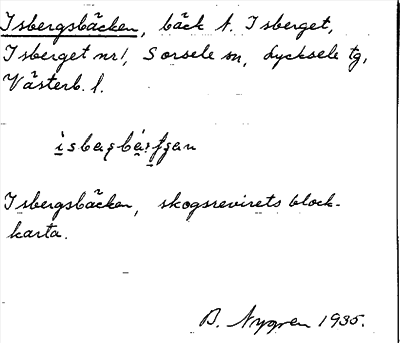 Isbergsbäcken, bäck t. Isberget,
Isberget nr 1, Sorsele sn, Lycksele tg,
Västerb. l.
Isbergsbäcken, skogsrevirets block-
karta.
B. Nygren 1935.